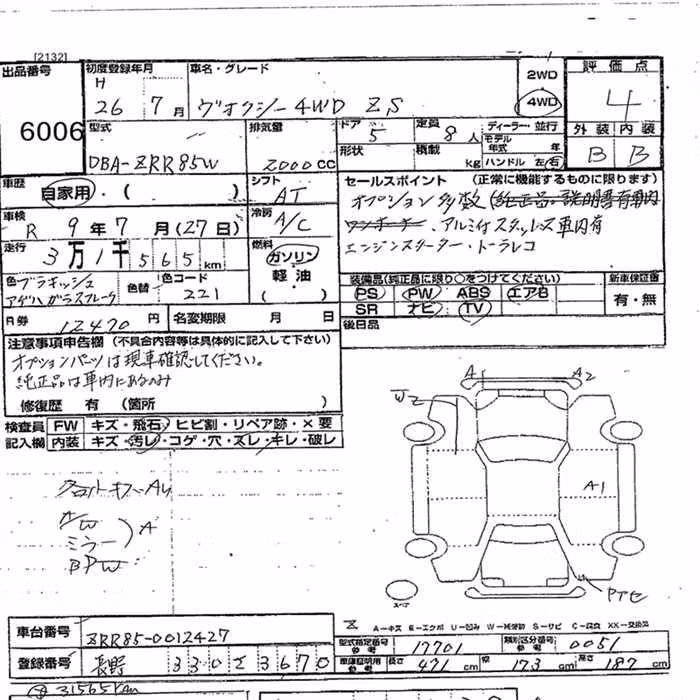 [2132]
出品番号 6006
初度登録年月 H 26 7月
車名・グレード ヴォクシー 4WD ZS
2WD
4WD
評価点 4
外装 内装
B B
型式 DBA-ZRR85W
排気量 2000 CC
ドア 5
定員 8人
ディーラー・並行
モデル年式 年
形状
積載 kg
ハンドル 左 右
車歴 自家用・( )
シフト AT
車検 R 9年 7月 (27日)
冷房 A/C
走行 3万1千565km
燃料 ガソリン
軽油
( )
色 ブラキッシュアゲハガラスフレーク
色替
色コード 221
R券 12470 円
名変期限 月 日
セールスポイント (正常に機能するものに限ります)
オプション多数 (純正品・説明書有車内
ワンオーナー、アルミ付スタッドレス車内有
エンジンスターター・ドラレコ
装備品(純正品に限り○をつけてください)
PS PW ABS エアB
SR ナビ TV
新車保証書
有・無
後日品
注意事項申告欄 (不具合内容等は具体的に記入して下さい)
オプションパーツは現車確認してください。
純正品は車内にあるのみ
修復歴 有 (箇所 )
検査員 FW キズ・飛石・ヒビ割・リペア跡・×要
記入欄 内装 キズ・汚レ・コゲ・穴・スレ・キレ・破レ
ミラー
A
A1 A2
W2
A1
スペア
A－キズ E－エクボ U－凹み W－補修跡 S－サビ C－腐食 XX－交換済
車台番号 ZRR85-0012427
型式指定番号 参考 17701
類別区分番号 参考 0051
登録番号 長野 330 ス 3670
車庫証明用 参考 長さ 471 cm 幅 173 cm 高さ 187 cm
31565km